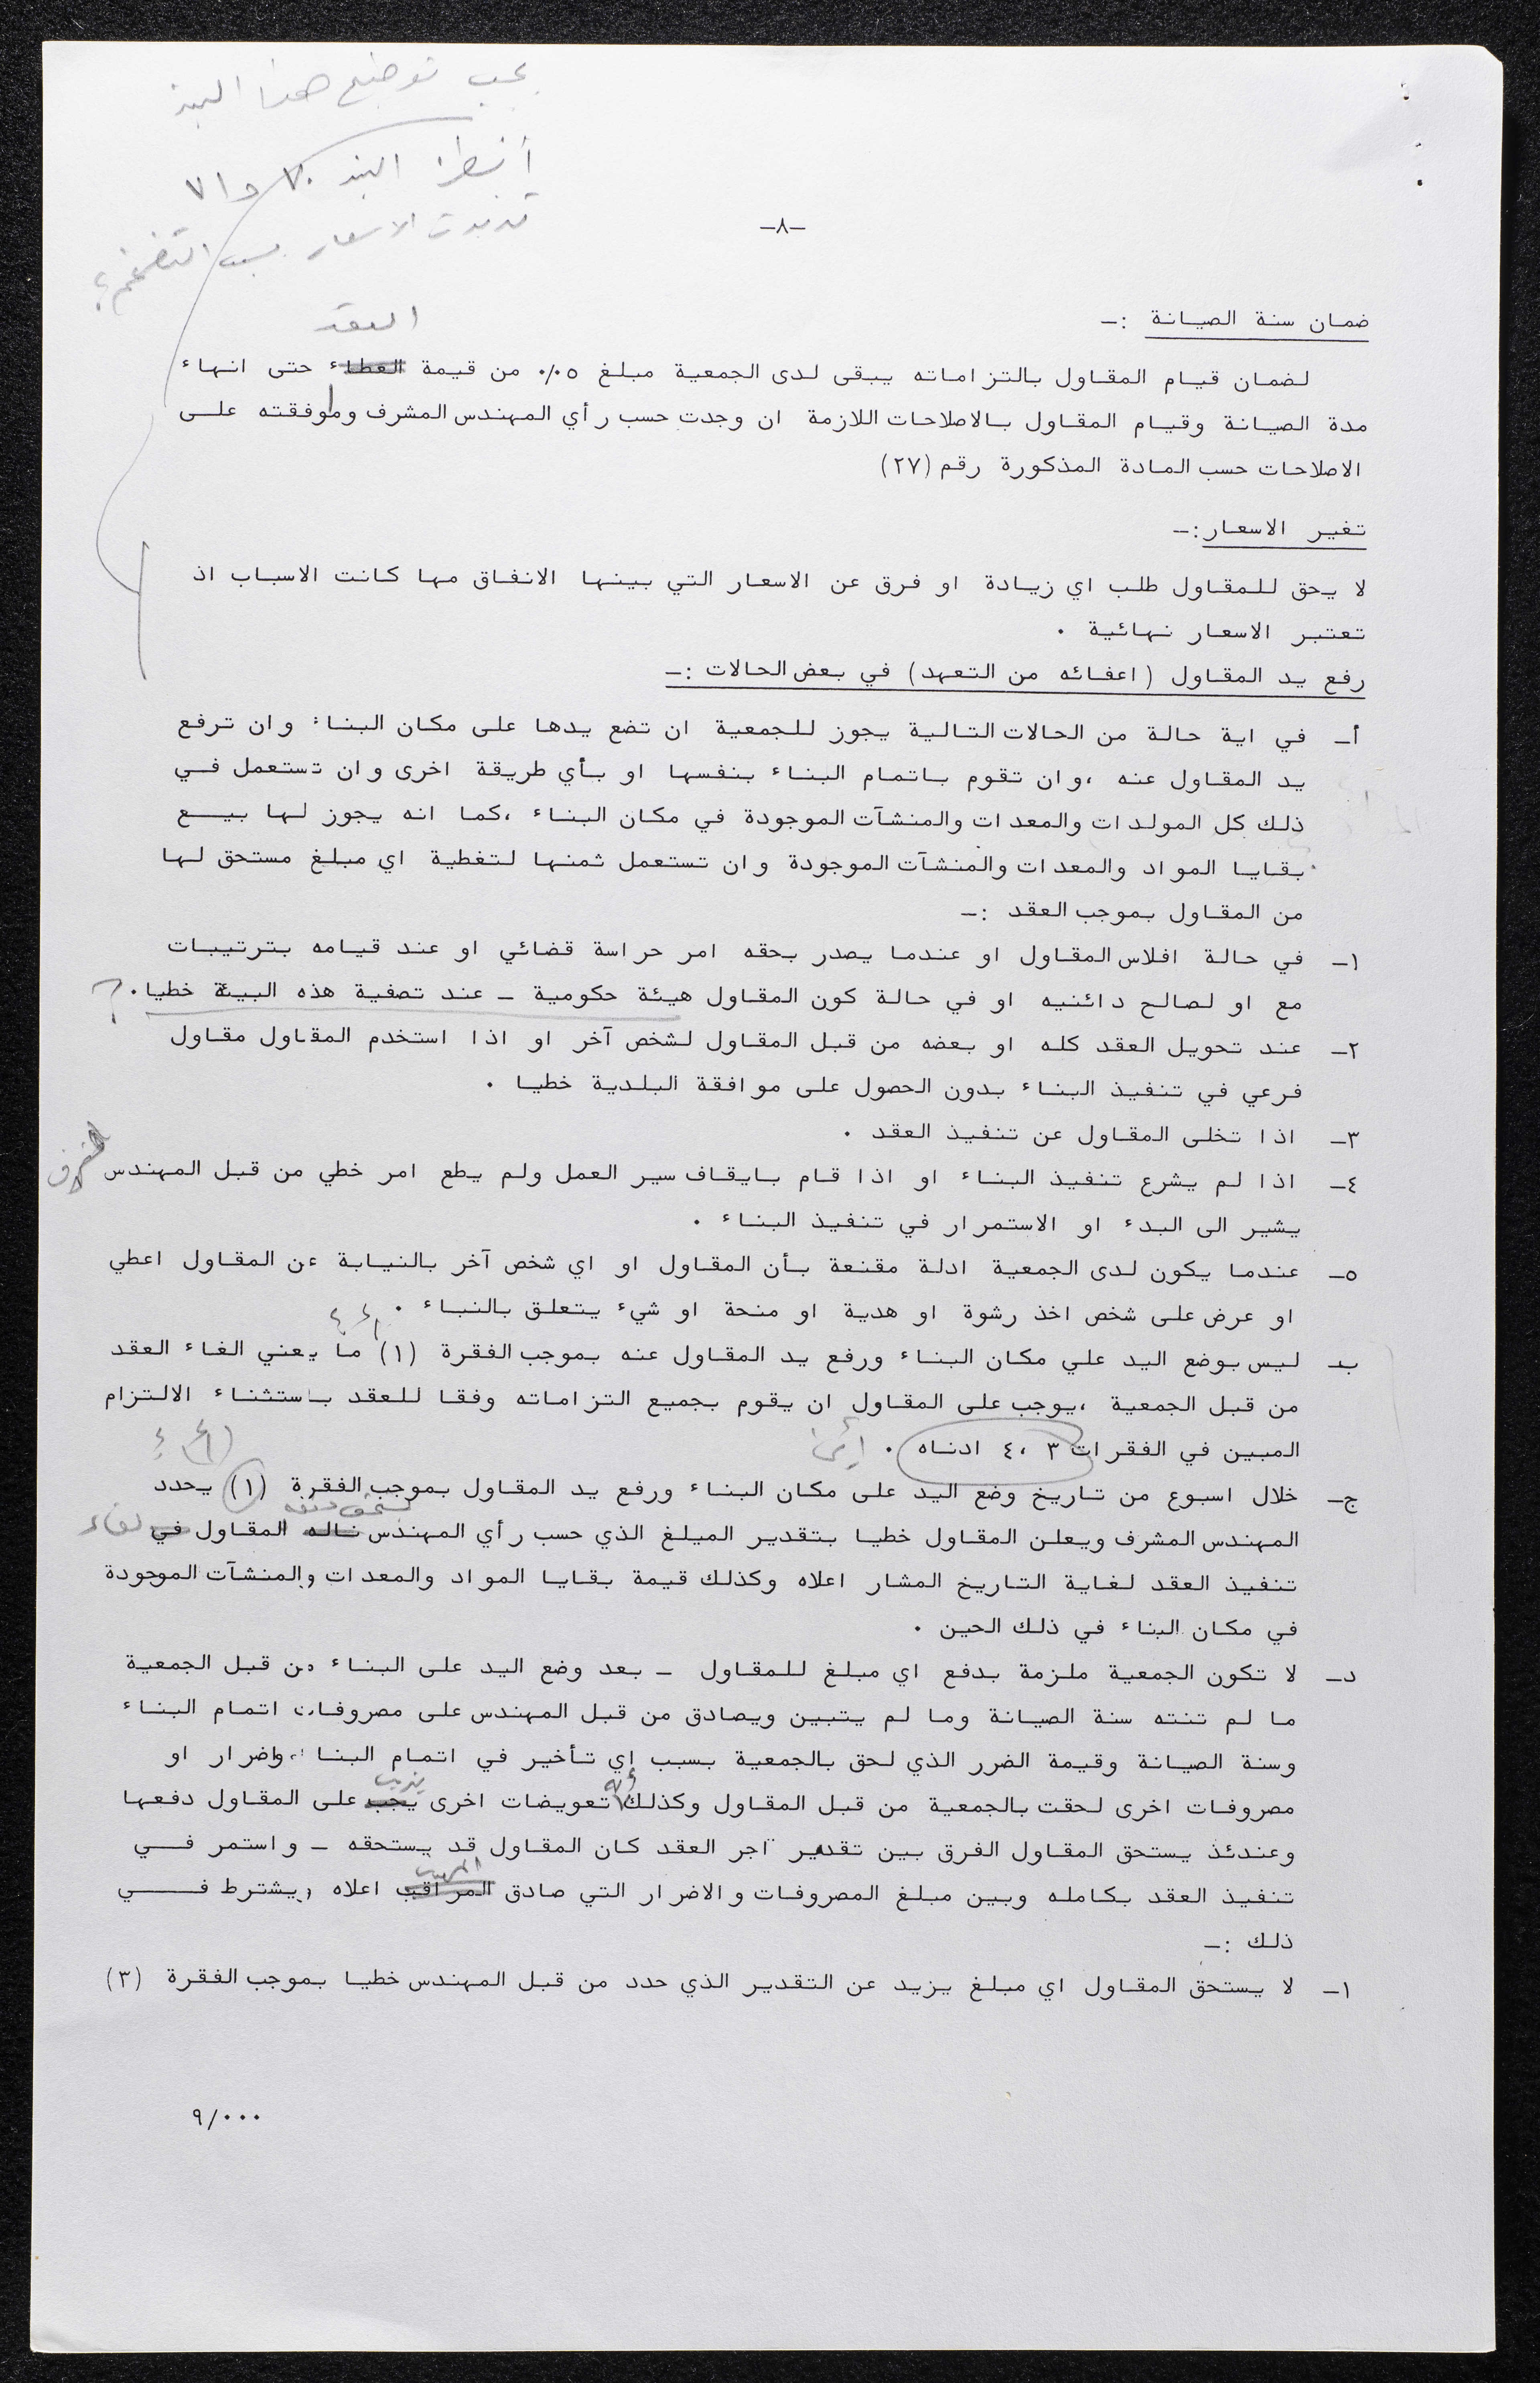 يجب توضيح هذا البند
أنظر البند ٧٠ و ٧١
تذبذبت الاسعار بسبب التضخم؟
-٨-
ضمان سنة الصيانة :-
العقد
لضمان قيام المقاول بالتزاماته يبقى لدى الجمعية مبلغ ٥٪ من قيمة العطاء حتى انهاء
مدة الصيانة وقيام المقاول بالاصلاحات اللازمة ان وجدت حسب رأي المهندس المشرف وموافقته على
الاصلاحات حسب المادة المذكورة رقم (٢٧)
تغير الاسعار :-
لا يحق للمقاول طلب اي زيادة او فرق عن الاسعار التي بينها الانفاق مها كانت الاسباب اذ
تعتبر الاسعار نهائية .
رفع يد المقاول (اعفائه من التعهد) في بعض الحالات :-
أ- في اية حالة من الحالات التالية يجوز للجمعية ان تضع يدها على مكان البناء وان ترفع
يد المقاول عنه ،وان تقوم باتمام البناء بنفسها او بأي طريقة اخرى وان تستعمل في
ذلك كل المولدات والمعدات والمنشآت الموجودة في مكان البناء ،كما انه يجوز لها بيع
بقايا المواد والمعدات والمنشآت الموجودة وان تستعمل ثمنها لتغطية اي مبلغ مستحق لها
من المقاول بموجب العقد :-
١- في حالة افلاس المقاول او عندما يصدر بحقه امر حراسة قضائي او عند قيامه بترتيبات
مع او لصالح دائنيه او في حالة كون المقاول هيئة حكومية - عند تصفية هذه البيئة خطيا. ?
٢- عند تحويل العقد كله او بعضه من قبل المقاول لشخص آخر او اذا استخدم المقاول مقاول
فرعي في تنفيذ البناء بدون الحصول على موافقة البلدية خطيا .
٣- اذا تخلى المقاول عن تنفيذ العقد .
٤- اذا لم يشرع تنفيذ البناء او اذا قام بايقاف سير العمل ولم يطع امر خطي من قبل المهندس المشرف
يشير الى البدء او الاستمرار في تنفيذ البناء .
٥- عندما يكون لدى الجمعية ادلة مقنعة بأن المقاول او اي شخص آخر بالنيابة عن المقاول اعطي
او عرض على شخص اخذ رشوة او هدية او منحة او شيء يتعلق بالنباء .
ب- ليس بوضع اليد علي مكان البناء ورفع يد المقاول عنه بموجب الفقرة (١) ما يعني الغاء العقد
من قبل الجمعية ،يوجب على المقاول ان يقوم بجميع التزاماته وفقا للعقد باستثناء الالتزام
المبين في الفقرات ٣ ،٤ ادناه . أين؟
ج- خلال اسبوع من تاريخ وضع اليد على مكان البناء ورفع يد المقاول بموجب الفقرة (١) يحدد
المهندس المشرف ويعلن المقاول خطيا بتقدير المبلغ الذي حسب رأي المهندس ناله المقاول في لقاء
تنفيذ العقد لغاية التاريخ المشار اعلاه وكذلك قيمة بقايا المواد والمعدات والمنشآت الموجودة
في مكان البناء في ذلك الحين .
د- لا تكون الجمعية ملزمة بدفع اي مبلغ للمقاول - بعد وضع اليد على البناء من قبل الجمعية
ما لم تنته سنة الصيانة وما لم يتبين ويصادق من قبل المهندس على مصروفات اتمام البناء
وسنة الصيانة وقيمة الضرر الذي لحق بالجمعية بسبب اي تأخير في اتمام البناء ،واضرار او
مصروفات اخرى لحقت بالجمعية من قبل المقاول وكذلك أية تعويضات اخرى يجب على المقاول دفعها
وعندئذ يستحق المقاول الفرق بين تقدير اجر العقد كان المقاول قد يستحقه - واستمر في
المهندس
تنفيذ العقد بكامله وبين مبلغ المصروفات والاضرار التي صادق المراقب اعلاه ويشترط في
ذلك :-
١- لا يستحق المقاول اي مبلغ يزيد عن التقدير الذي حدد من قبل المهندس خطيا بموجب الفقرة (٣)
٩/...